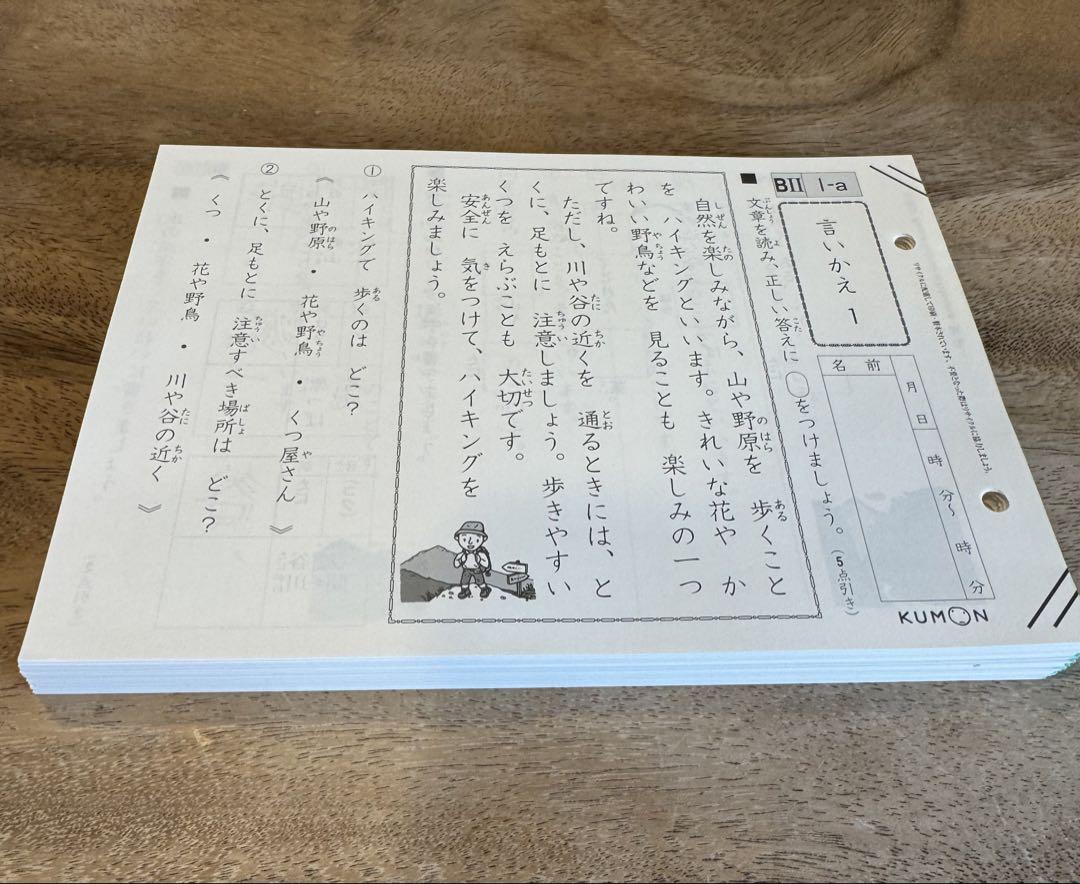 BII 1-a
言いかえ 1
月 日 時 分〜 時 分
名前
KUMON
■ 文章を読み、正しい答えに○をつけましょう。(5点引き)
自然を楽しみながら、山や野原を 歩くこと
を ハイキングといいます。きれいな花や か
わいい野鳥などを 見ることも 楽しみの一つ
ですね。
ただし、川や谷の近くを 通るときには、と
くに、足もとに 注意しましょう。歩きやすい
くつを えらぶことも 大切です。
安全に 気をつけて、ハイキングを
楽しみましょう。
① ハイキングで 歩くのは どこ?
《 山や野原 ・ 花や野鳥 ・ くつ屋さん 》
② とくに、足もとに 注意すべき場所は どこ?
《 くつ ・ 花や野鳥 ・ 川や谷の近く 》